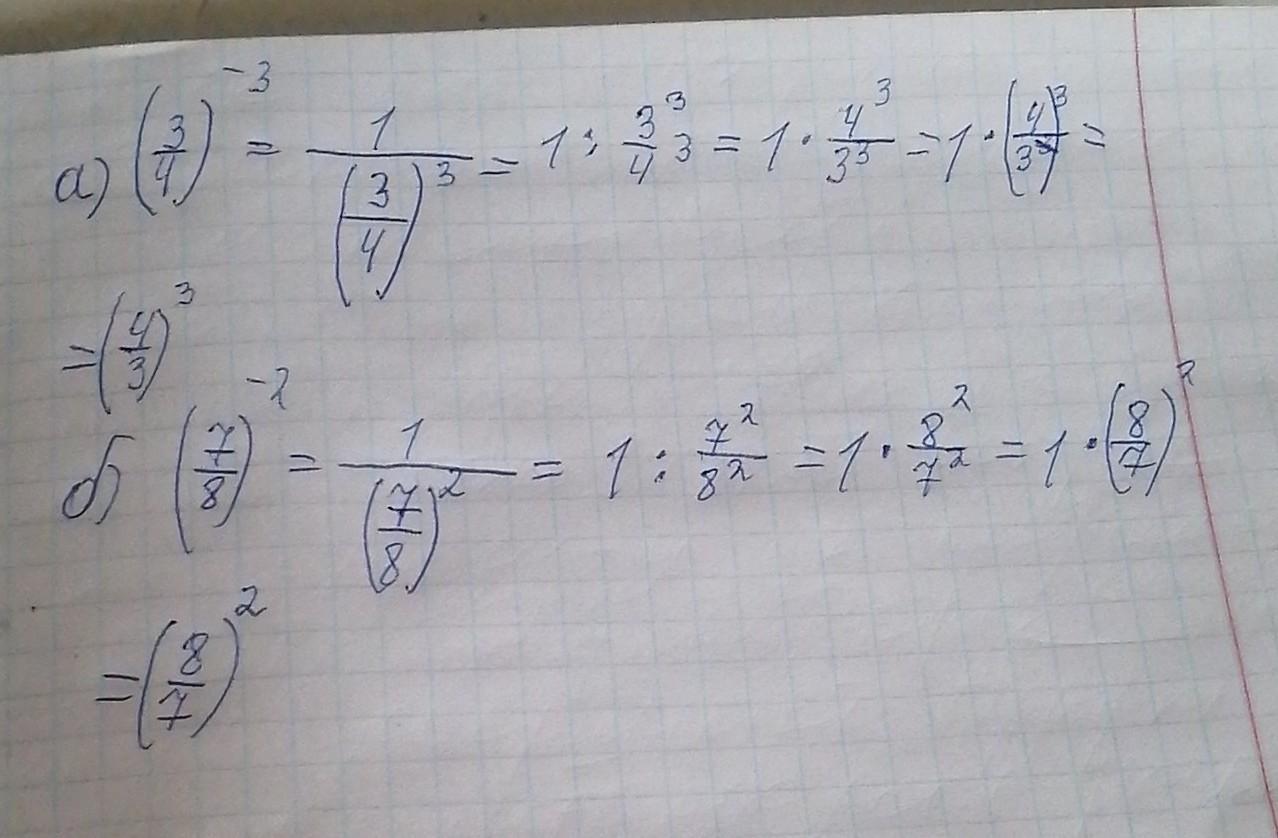 а) (3/4)⁻³ = 1/(3/4)³ = 1 : 3³/4³ = 1 · 4³/3³ = 1 · (4/3)³ =
= (4/3)³
б) (7/8)⁻² = 1/(7/8)² = 1 : 7²/8² = 1 · 8²/7² = 1 · (8/7)²
= (8/7)²